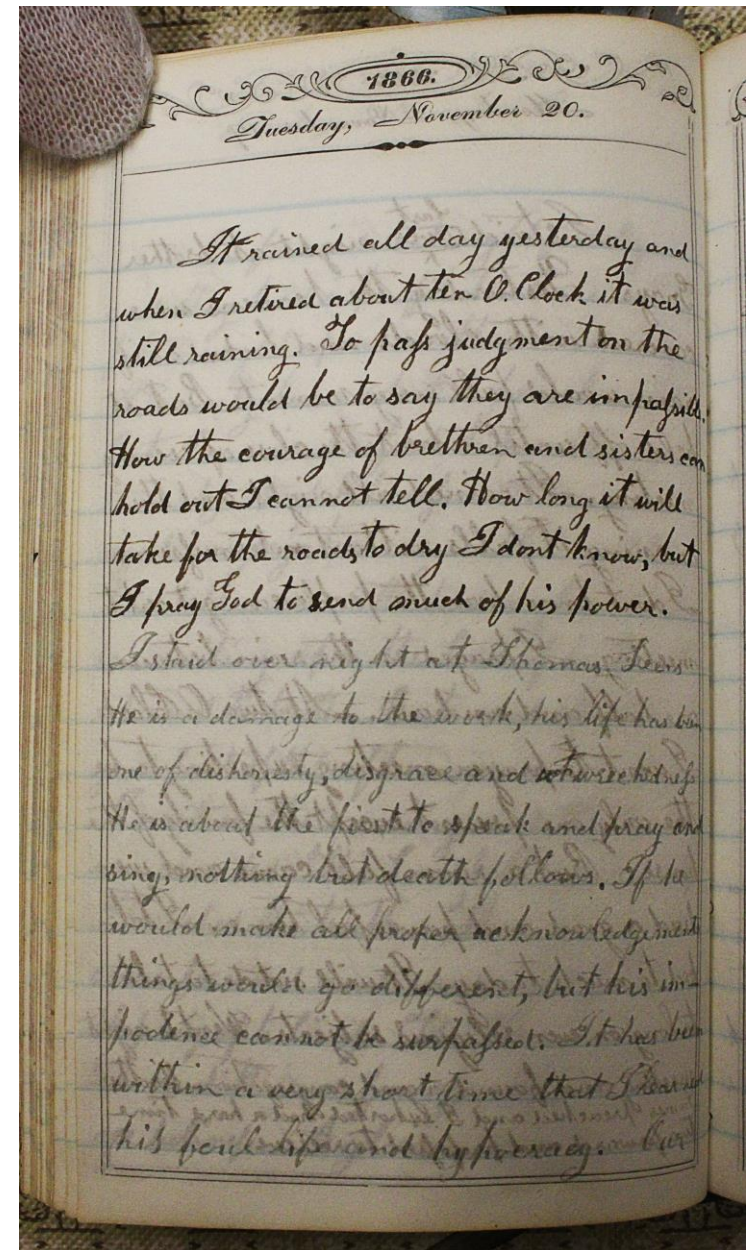 1866.
Tuesday, November 20.
It rained all day yesterday and
when I retired about ten O.Clock it was
still raining. To paſs judgment on the
roads would be to say they are impaſsible.
How the courage of brethren and sisters can
hold out I cannot tell. How long it will
take for the roads to dry I dont know, but
I pray God to send much of his power.
I staid over night at Thomas
He is a damage to the work, his life has been
one of dishonesty, disgrace and wreckedneſs
He is about the first to speak and pray and
sing, nothing but death follows. If he
would make all proper acknowledgement
things would go different, but his im-
pudence cannot be surpaſsed. It has been
within a very short time that I learned
his foul life and hypocracy. Our